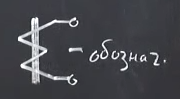 - обознач.